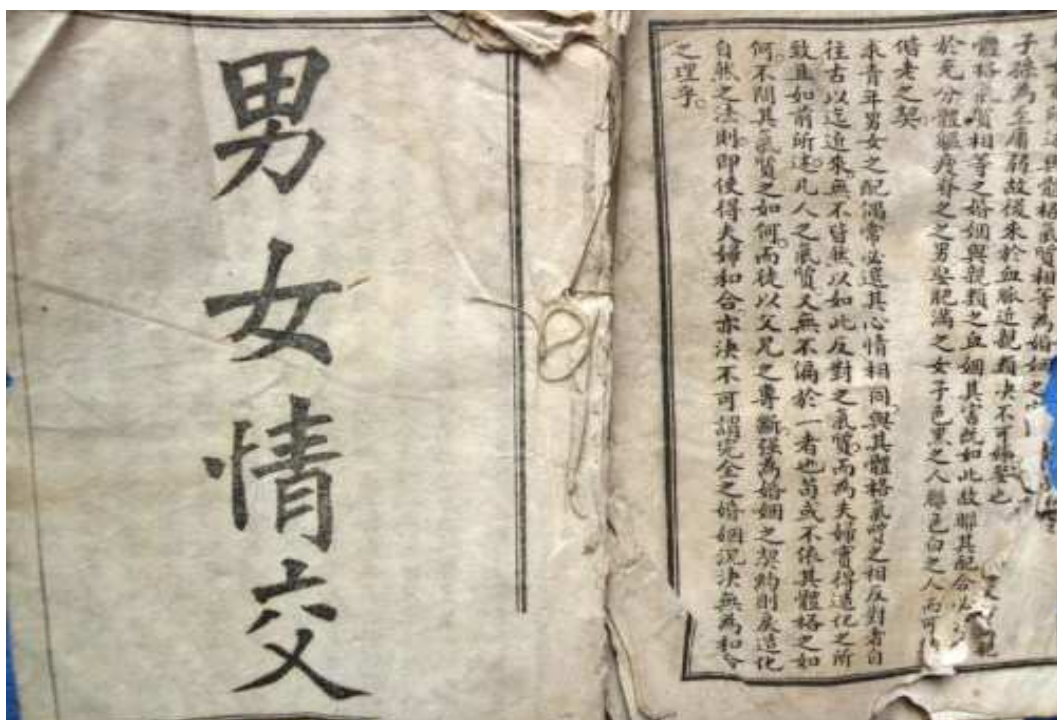 與體格氣質相等為婚姻之
子孫為至庸弱故從來於血脈近親類决不可婚娶也
體格氣質相等之婚姻與親類之血姻其害既如此故聯其配合必
於充分體軀瘦脊之之男娶肥滿之女子色黑之人聯色白之人而可
偕老之契
來青年男女之配偶常必選其心情相同與其體格氣質之相反對者自
往古以迄近來無不皆然以如此反對之氣質而為夫婦實得造化之所
致且如前所述凡人之氣質又無不偏於一者也苟或不依其體格之如
何不問其氣質之如何而徒以父兄之專斷强為婚姻之契約則戾造化
自然之法則即使得夫婦和合亦決不可謂完全之婚姻況決無為和合
之理乎
男女情交